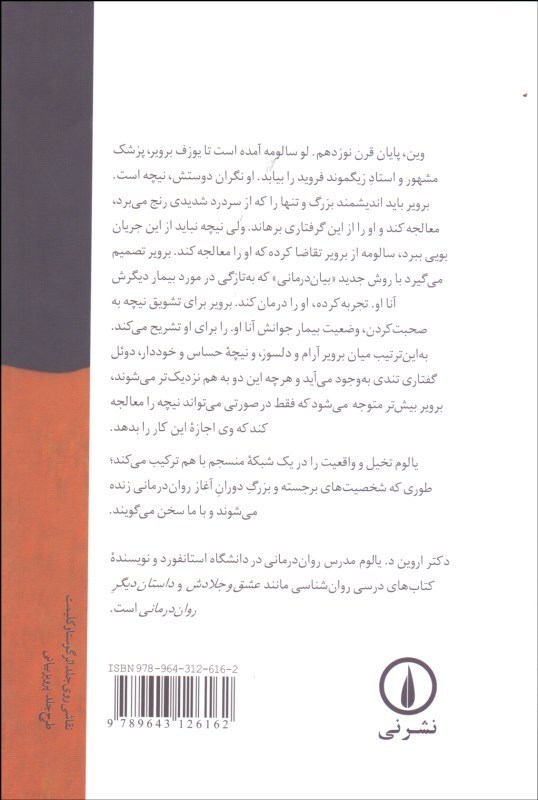 وین، پایان قرن نوزدهم. لو سالومه آمده است تا یوزف برویر، پزشک
مشهور و استادِ زیگموند فروید را بیابد. او نگران دوستش، نیچه است.
برویر باید اندیشمند بزرگ و تنها را که از سردرد شدیدی رنج می‌برد،
معالجه کند و او را از این گرفتاری برهاند. ولی نیچه نباید از این جریان
بویی ببرد، سالومه از برویر تقاضا کرده که او را معالجه کند. برویر تصمیم
می‌گیرد با روش جدید «بیان‌درمانی» که به‌تازگی در مورد بیمار دیگرش
آنا او. تجربه کرده، او را درمان کند. برویر برای تشویق نیچه به
صحبت‌کردن، وضعیت بیمار جوانش آنا او. را برای او تشریح می‌کند.
به‌این‌ترتیب میان برویر آرام و دلسوز، و نیچهٔ حساس و خوددار، دوئل
گفتاری تندی به‌وجود می‌آید و هرچه این دو به هم نزدیک‌تر می‌شوند،
برویر بیش‌تر متوجه می‌شود که فقط در صورتی می‌تواند نیچه را معالجه
کند که وی اجازهٔ این کار را بدهد.
یالوم تخیل و واقعیت را در یک شبکهٔ منسجم با هم ترکیب می‌کند؛
طوری که شخصیت‌های برجسته و بزرگِ دورانِ آغاز روان‌درمانی زنده
می‌شوند و با ما سخن می‌گویند.
دکتر اروین د. یالوم مدرس روان‌درمانی در دانشگاه استانفورد و نویسندهٔ
کتاب‌های درسی روان‌شناسی مانند عشق و جلادش و داستان دیگرِ
روان‌درمانی است.
نقاشی روی جلد: اثر گوستاو کلیمت
طرح جلد: پرویز بیانی
ISBN 978-964-312-616-2
9 789643 126162
نشر نی